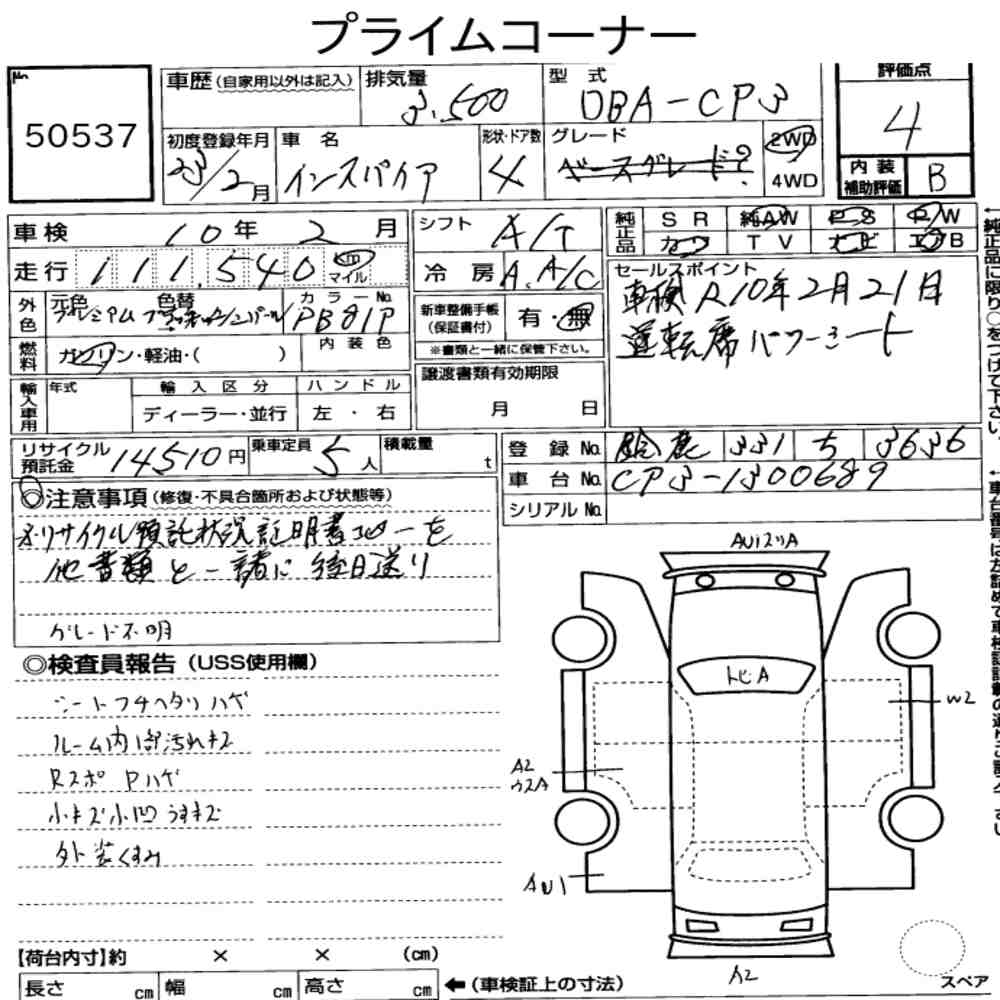 プライムコーナー
No
50537
車歴 (自家用以外は記入)
排気量
3.500
型式
DBA-CP3
評価点
4
初度登録年月
23/2月
車名
インスパイア
形状・ドア数
4
グレード
ベースグレード?
2WD
4WD
内装
補助評価
B
車検 10年 2月
シフト A/T
純正品
SR 純AW PS PW
カワ TV ナビ エアB
走行 111,540 km マイル
冷房 A.A/C
セールスポイント
車検R10年2月21日
運転席パワーシート
外色
元色 色替
プレミアムブラキッシュパール
カラーNo.
PB81P
内装色
新車整備手帳
(保証書付)
有・無
※書類と一緒に保管下さい。
燃料
ガソリン・軽油・( )
輸入車用
年式
輸入区分
ディーラー・並行
ハンドル
左・右
譲渡書類有効期限
月 日
リサイクル
預託金
14510円
乗車定員 5人
積載量 t
登録No. 鈴鹿 331 ち 3636
車台No. CP3-1300689
シリアルNo.
◎注意事項 (修復・不具合箇所および状態等)
※リサイクル預託状況証明書コピーを
他書類と一諸に後日送り
グレード不明
◎検査員報告 (USS使用欄)
シートフチヘタリハゲ
ルーム内部汚れキズ
Rスポ Pハゲ
小キズ小凹うすキズ
外装くすみ
AU1スリA
トビA
W2
A2
ウスA
AU1
A2
スペア
【荷台内寸】約 × × (cm)
長さ cm 幅 cm 高さ cm
←(車検証上の寸法)
←純正品に限り○をつけて下さい。